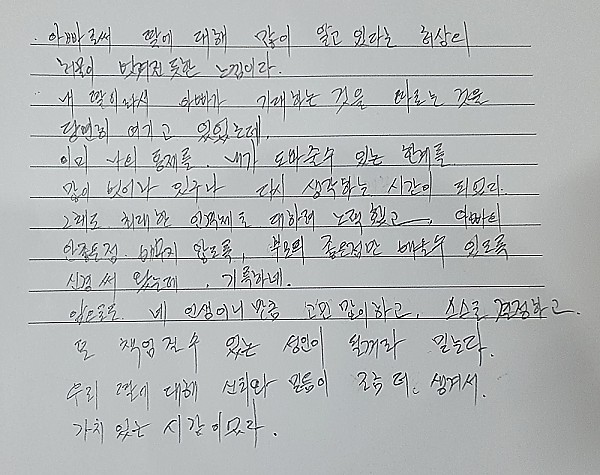 . 아빠로써 딸에 대해 많이 알고 있다는 허상의
허울이 벗겨진듯한 느낌이다.
내 딸이라서 아빠가 기대하는 것을 따르는 것을
당연히 여기고 있었는데,
이미 나의 통제를. 내가 도와줄수 있는 한계를
많이 벗어나 있구나 다시 생각하는 시간이 되었다.
그래도 최대한 인격체로 대하려 노력했고, 아빠의
안좋은점 배우지 않도록, 부모의 좋은점만 배울수 있도록
신경써 왔는데, 기특하네.
앞으로는 네 인생이니만큼 고민 많이하고, 스스로 결정하고.
또 책임질수 있는 성인이 될꺼라 믿는다.
우리 딸에 대해 신뢰와 믿음이 조금 더 생겨서.
가치 있는 시간이었다.